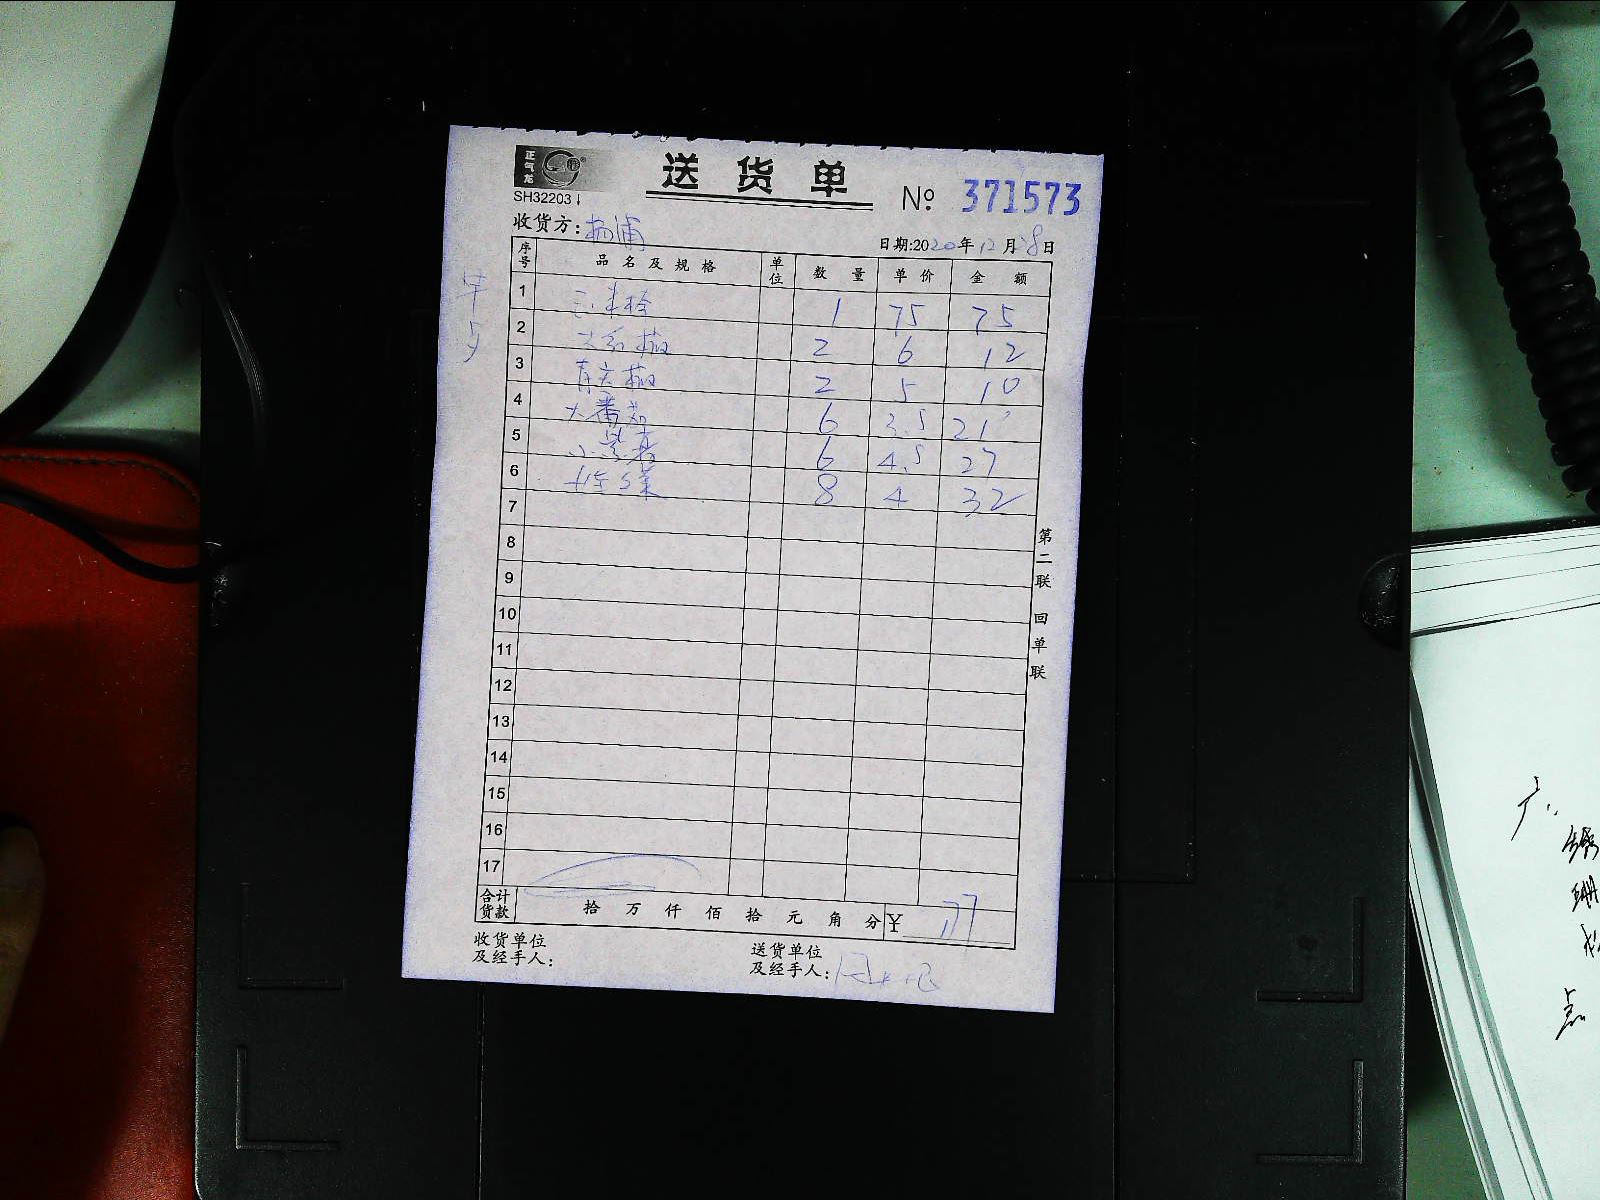 正气龙
送货单
SH32203
№ 371573
收货方:杨浦
日期:2020年12月28日
序号 品名及规格 单位 数量 单价 金额
1 1 75 75
2 大红椒 2 6 12
3 青尖椒 2 5 10
4 大番茄 6 3.5 21
5 小紫薯 6 4.5 27
6 8 4 32
7
8
9
10
11
12
13
14
15
16
17
合计货款 拾 万 仟 佰 拾 元 角 分 ¥ 177
收货单位及经手人:
送货单位及经手人:
第二联 回单联
点